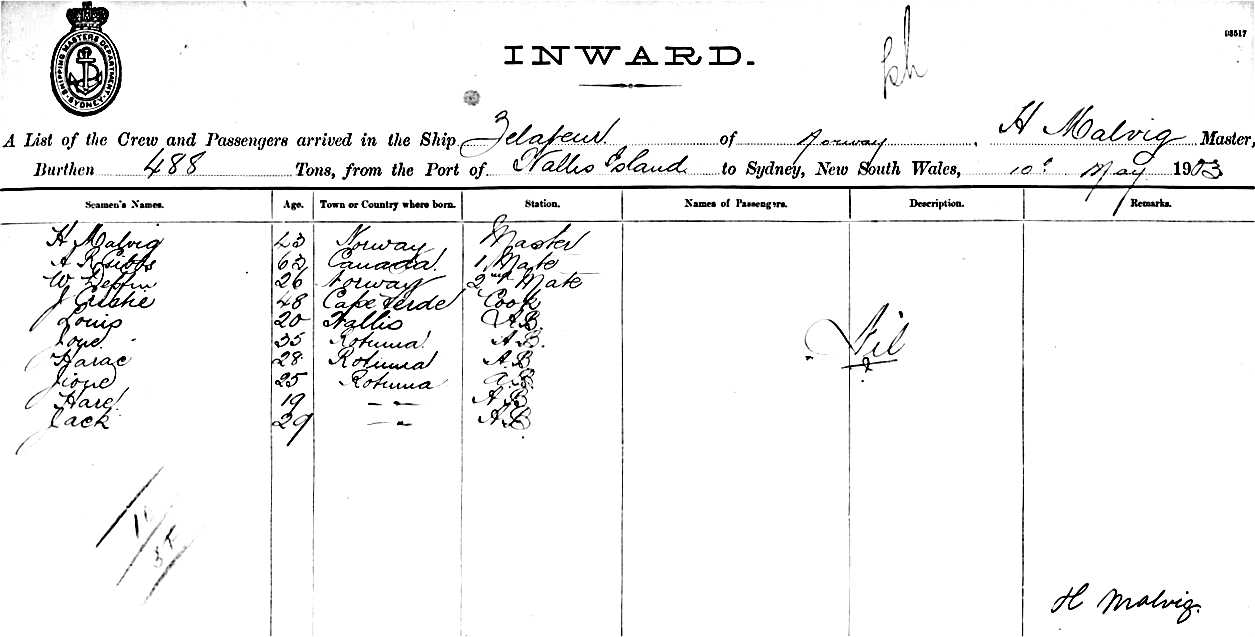 SHIPPING MASTERS DEPARTMENT SYDNEY
03517
INWARD.
A List of the Crew and Passengers arrived in the Ship of Norway, H Malvig Master,
Burthen 488 Tons, from the Port of Wallis Island to Sydney, New South Wales, 10 May 1903
Seamen's Names. Age. Town or Country where born. Station. Names of Passengers. Description. Remarks.
H Malvig 43 Norway Master
A R Gibbs 62 Canada 1 Mate
W 26 Norway 2nd Mate
J 48 Cape Verde Cook
Louis 20 Wallis A.B.
Ione 35 Rotuma A.B.
Harae 28 Rotuma A.B.
Jione 25 Rotuma A.B.
19 — " — A B
Jack 29 — " A.B.
Nil
H Malvig.